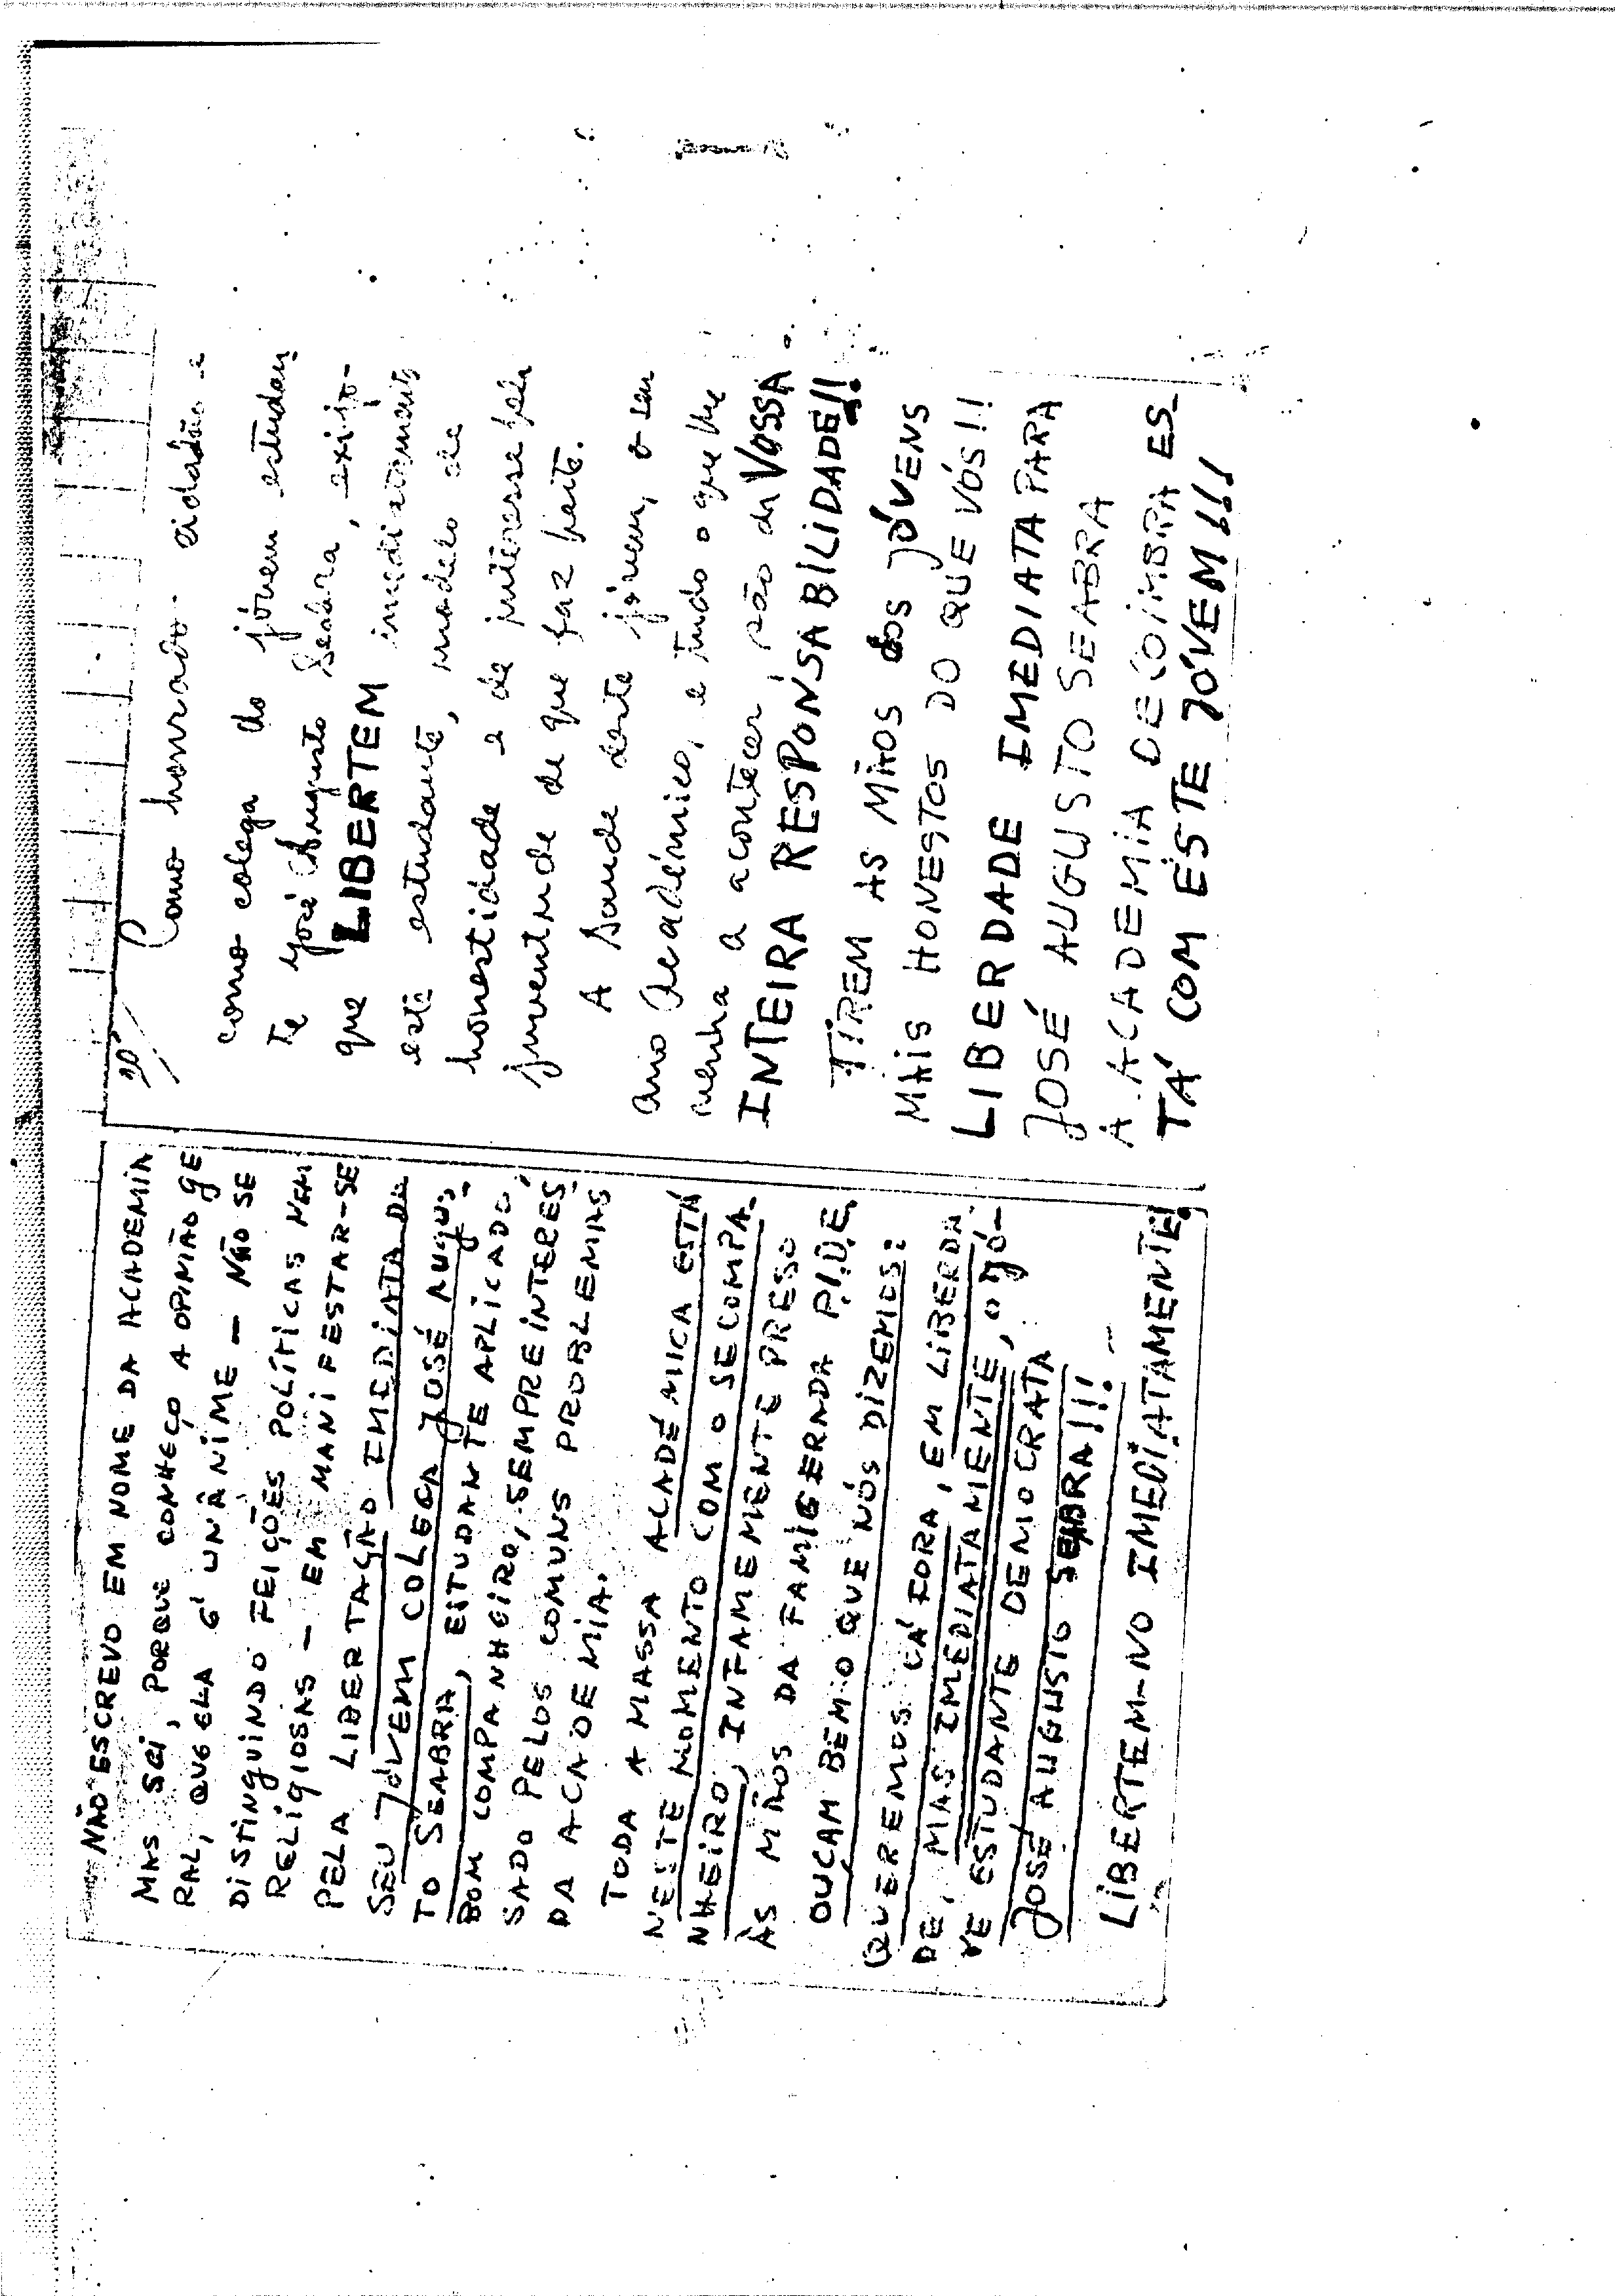 NÃO ESCREVO EM NOME DA ACADEMIA
MAS SEI, PORQUE CONHEÇO A OPINIÃO GE
RAL, QUE ELA É UNÂNIME — NÃO SE
DISTINGUINDO FEIÇÕES POLÍTICAS NEM
RELIGIOSAS — EM MANIFESTAR-SE
PELA LIBERTAÇÃO IMEDIATA DO
SEU JOVEM COLEGA JOSÉ AUGUS
TO SEABRA, EITUDANTE APLICADO,
BOM COMPANHEIRO, SEMPRE INTERES
SADO PELOS COMUNS PROBLEMAS
DA ACADEMIA.
TODA A MASSA ACADÉMICA ESTÁ
NESTE MOMENTO COM O SE COMPA
NHEIRO, INFAMEMENTE PRESO
ÀS MÃOS DA FAMIGERADA P.I.D.E.
OUÇAM BEM O QUE NÓS DIZEMOS:
QUEREMOS CÁ FORA, EM LIBERDA
DE, MAS IMEDIATAMENTE, O JÓ-
VE ESTUDANTE DEMOCRATA
JOSÉ AUGUSTO SEABRA!!!
LIBERTEM-NO IMEDIATAMENTE!
Como honrado cidadão e
como colega do jóvem estudan
te José Augusto Seabra, exijo-
que LIBERTEM imediatamente
este estudante, modelo de
honestidade e de interesse pela
juventude de que faz parte.
A Saude deste jóvem, o seu
ano Académico, e tudo o que lhe
venha a acontecer, são da VOSSA
INTEIRA RESPONSABILIDADE!!
TIREM AS MÃOS DOS JÓVENS
MAIS HONESTOS DO QUE VÓS!!
LIBERDADE IMEDIATA PARA
JOSÉ AUGUSTO SEABRA
A ACADEMIA DE COIMBRA ES-
TÁ COM ÊSTE JÓVEM!!!